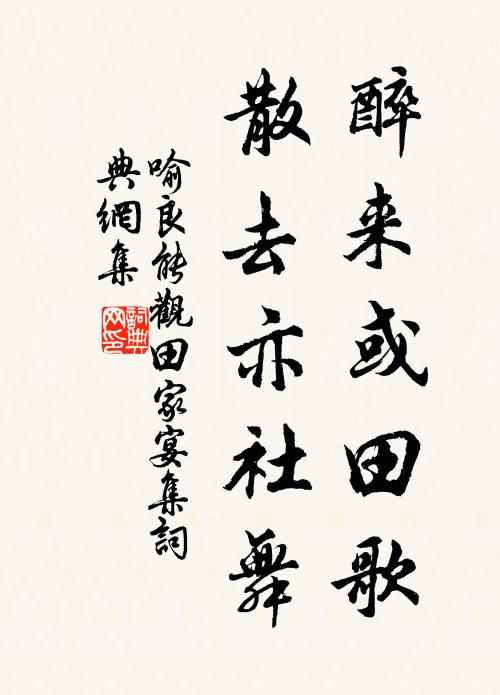 醉来或田歌
散去亦社舞
喻良能觀田家宴集詞
典網集
詞典网印